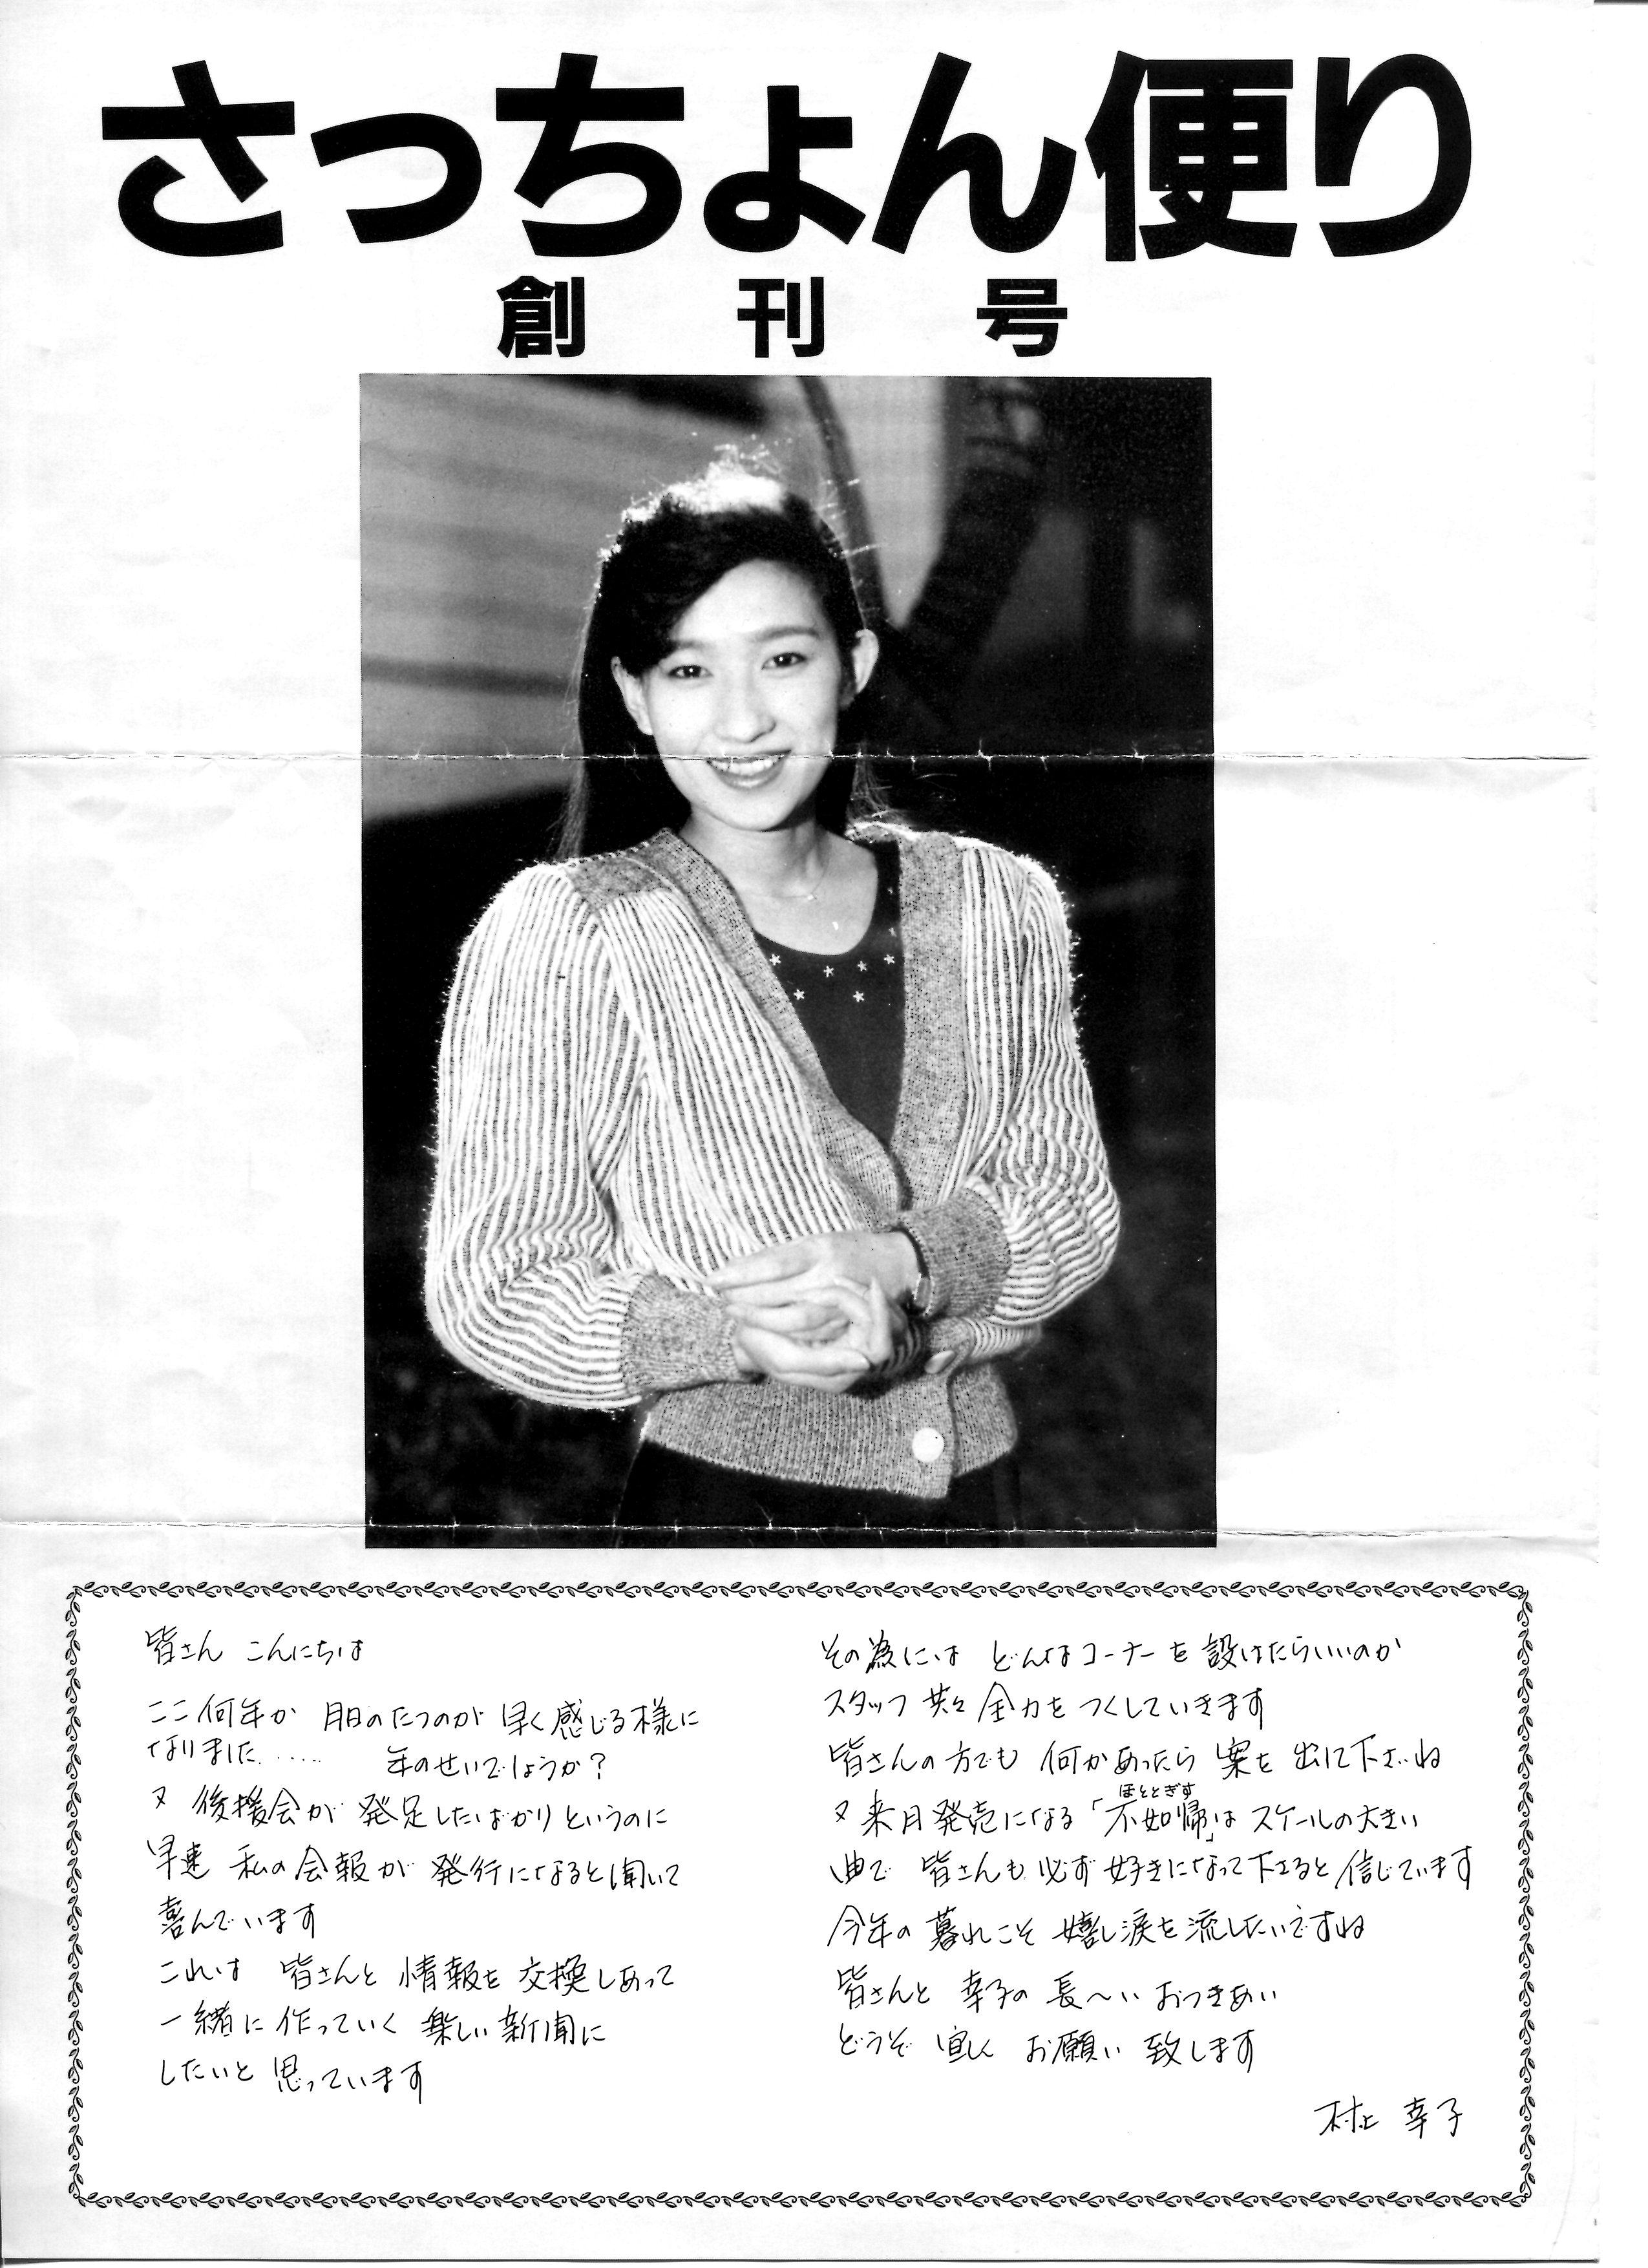 さっちょん便り
創刊号
皆さん こんにちは
ここ何年か 月日のたつのが 早く感じる様に
なりました…… 年のせいでしょうか?
又 後援会が 発足したばかりというのに
早速 私の会報が 発行になると聞いて
喜んでいます
これは 皆さんと 情報を 交換しあって
一緒に 作っていく 楽しい 新聞に
したいと 思っています
その為には どんなコーナーを 設けたらいいのか
スタッフ 共々 全力を つくしていきます
皆さんの方でも 何かあったら 案を 出して下さいね
ほととぎす
又 来月発売になる「不如帰」は スケールの大きい
曲で 皆さんも 必ず 好きになって下さると 信じています
今年の 暮れこそ 嬉し涙を 流したいですね
皆さんと 幸子の 長〜い おつきあい
どうぞ 宜しく お願い 致します
村上 幸子